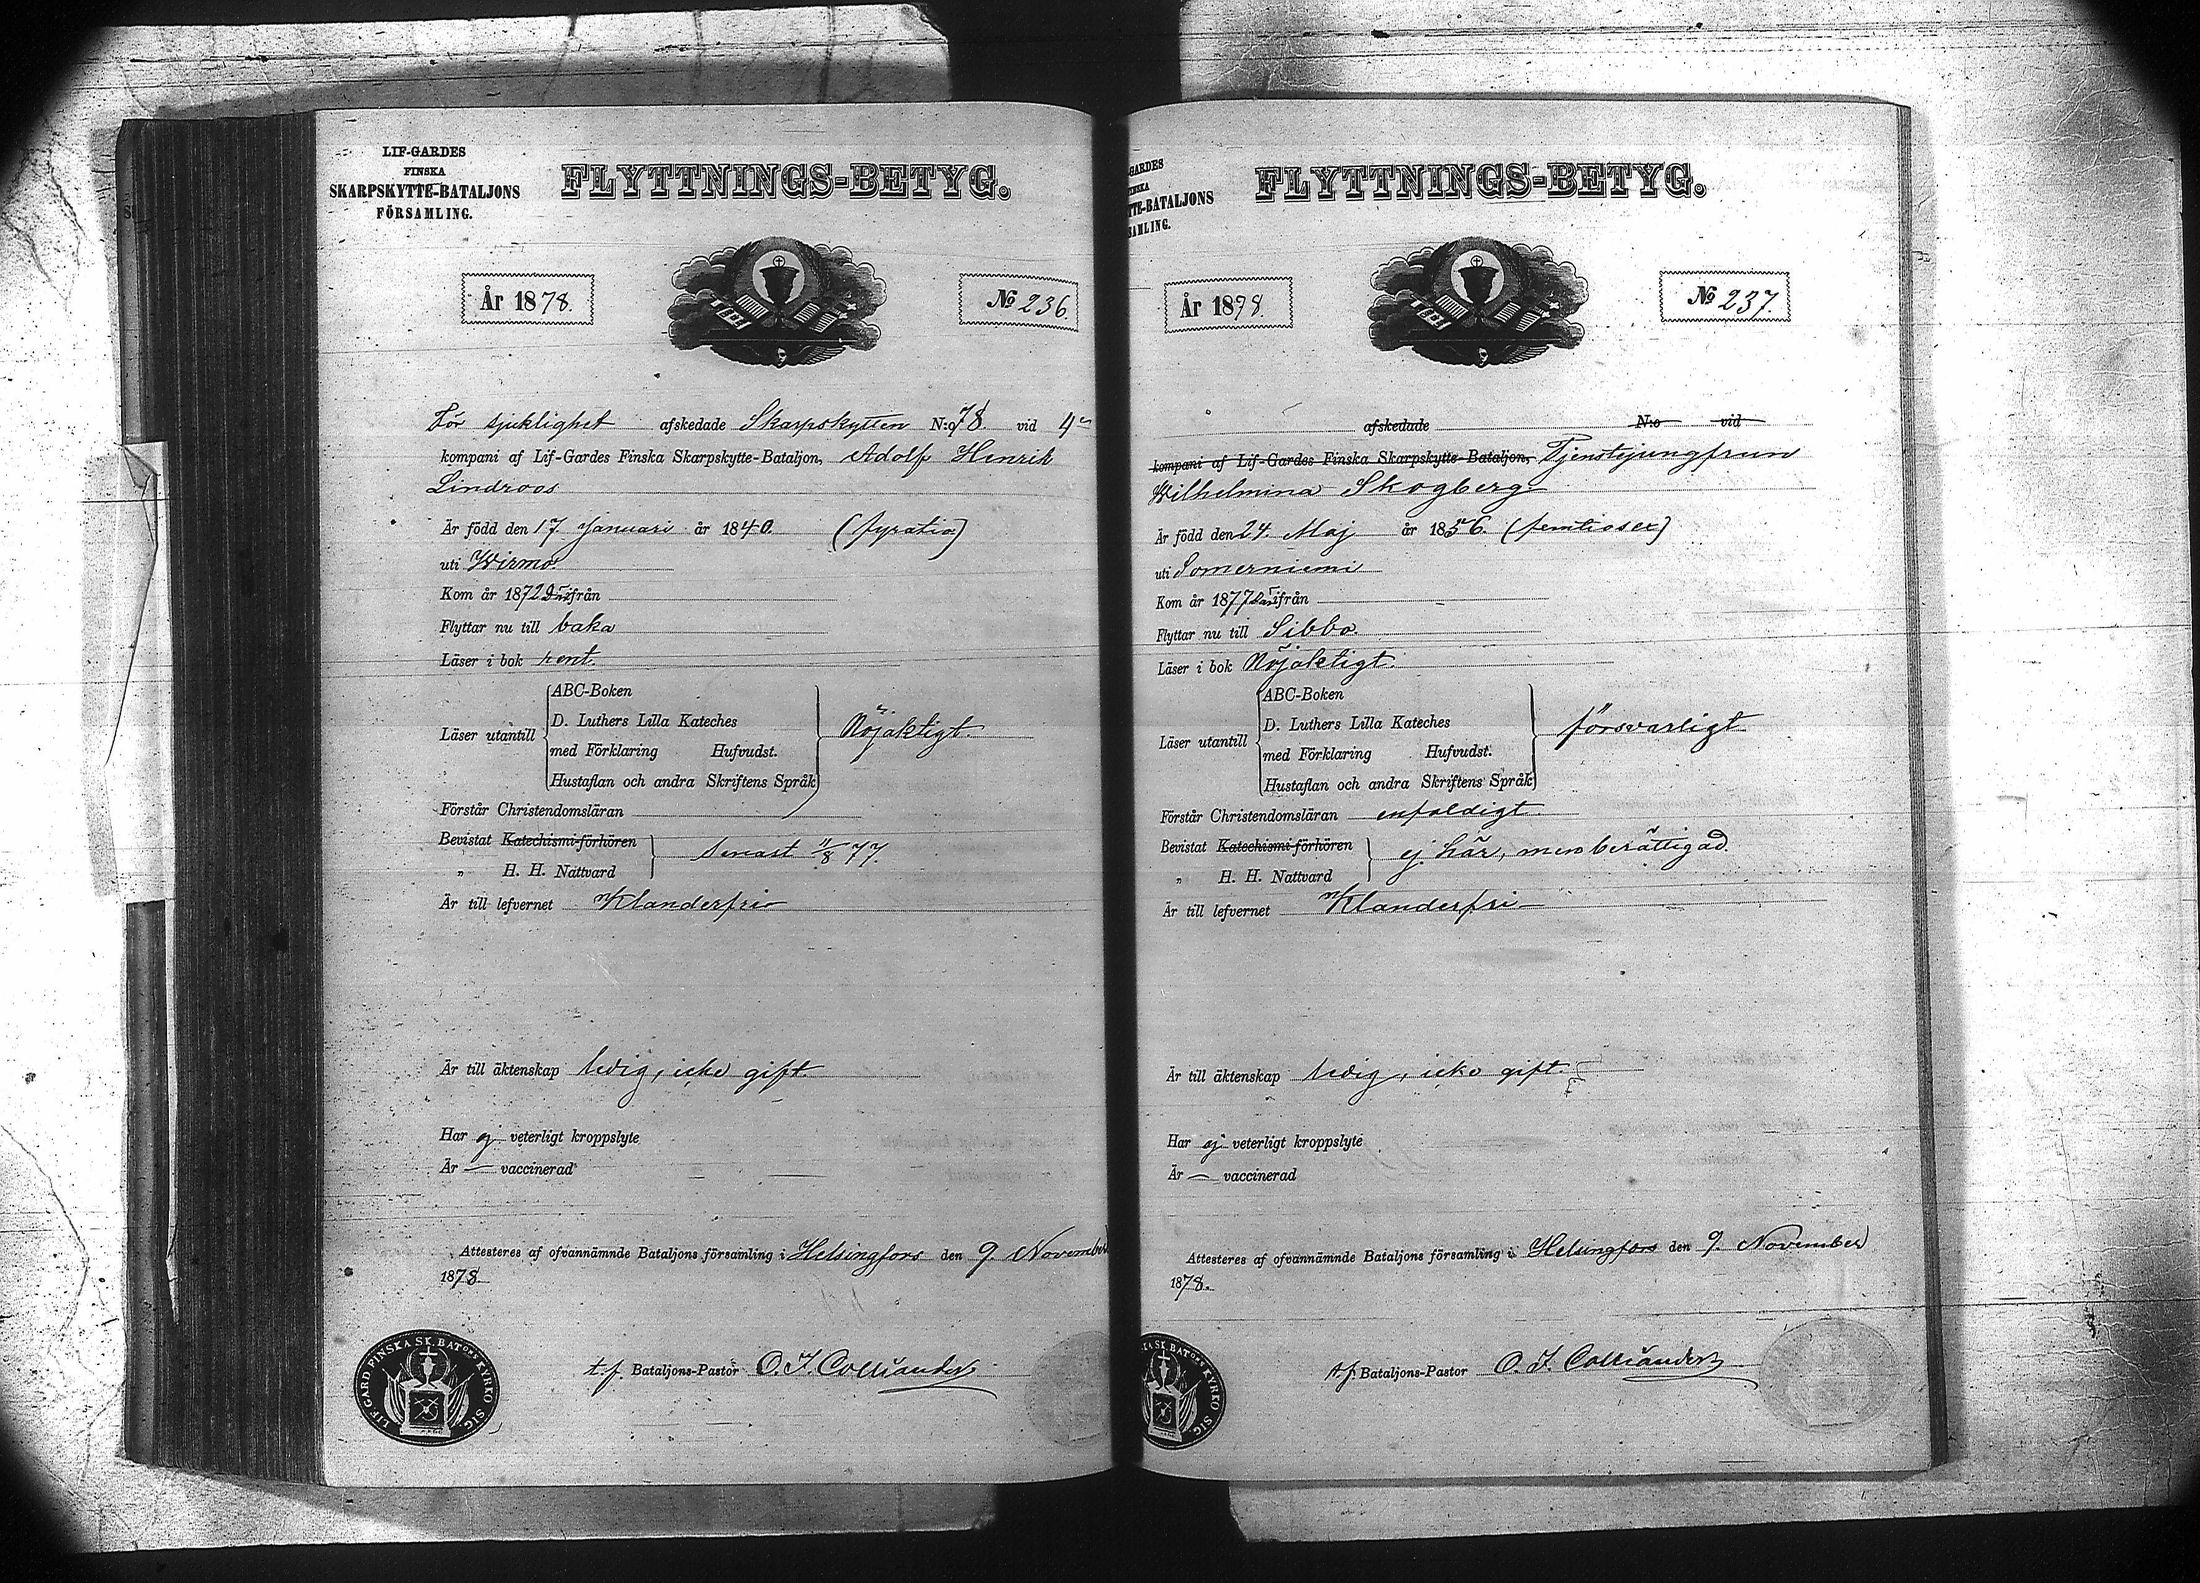 LIF-GARDES
FINSKA
SKARPSKYTTE-BATALJONS
FÖRSAMLING.
FLYTTNINGS-BETYG.
År 1878.
No 236.
För sjuklighet afskedade Skarpskytten N:o 78 vid 4
kompani af Lif-Gardes Finska Skarpskytte-Bataljon, Adolf Henrik
Lindroos
Är född den 17 Januari år 1840. (fyratio)
uti Wirmo
Kom år 1872 från
Flyttar nu till baka
Läser i bok rent.
Läser utantill
ABC-Boken
D. Luthers Lilla Kateches
med Förklaring Hufvudst.
Hustaflan och andra Skriftens Språk
Nöjaktigt.
Förstår Christendomsläran
Bevistat Katechismi-förhören
„ H. H. Nattvard
senast 11/8 77.
Är till lefvernet Klanderfri
Är till äktenskap ledig, icke gift.
Har ej veterligt kroppslyte
Är — vaccinerad
Attesteres af ofvannämnde Bataljons församling i Helsingfors den 9. November
1878.
t.f. Bataljons-Pastor O. I. Colliander
LIF-GARD FINSKA SK. BATONS KYRKO SIG.
-GARDES
TTE-BATALJONS
SAMLING.
FLYTTNINGS-BETYG.
År 1878.
No 237.
afskedade N:o vid
kompani af Lif-Gardes Finska Skarpskytte-Bataljon, Tjenstejungfrun
Wilhelmina Skogberg.
Är född den 24. Maj år 1856. (femtiosex)
uti Somerniemi
Kom år 1877 från
Flyttar nu till Sibbo.
Läser i bok Nöjaktigt.
Läser utantill
ABC-Boken
D. Luthers Lilla Kateches
med Förklaring Hufvudst.
Hustaflan och andra Skriftens Språk
försvarligt
Förstår Christendomsläran enfaldigt.
Bevistat Katechismi-förhören
„ H. H. Nattvard
ej här, men berättigad.
Är till lefvernet Klanderfri
Är till äktenskap ledig, icke gift.
Har ej veterligt kroppslyte
Är — vaccinerad
Attesteres af ofvannämnde Bataljons församling i Helsingfors den 9. November
1878.
t.f. Bataljons-Pastor O. I. Colliander
SKA SK. BATONS KYRKO SIG.